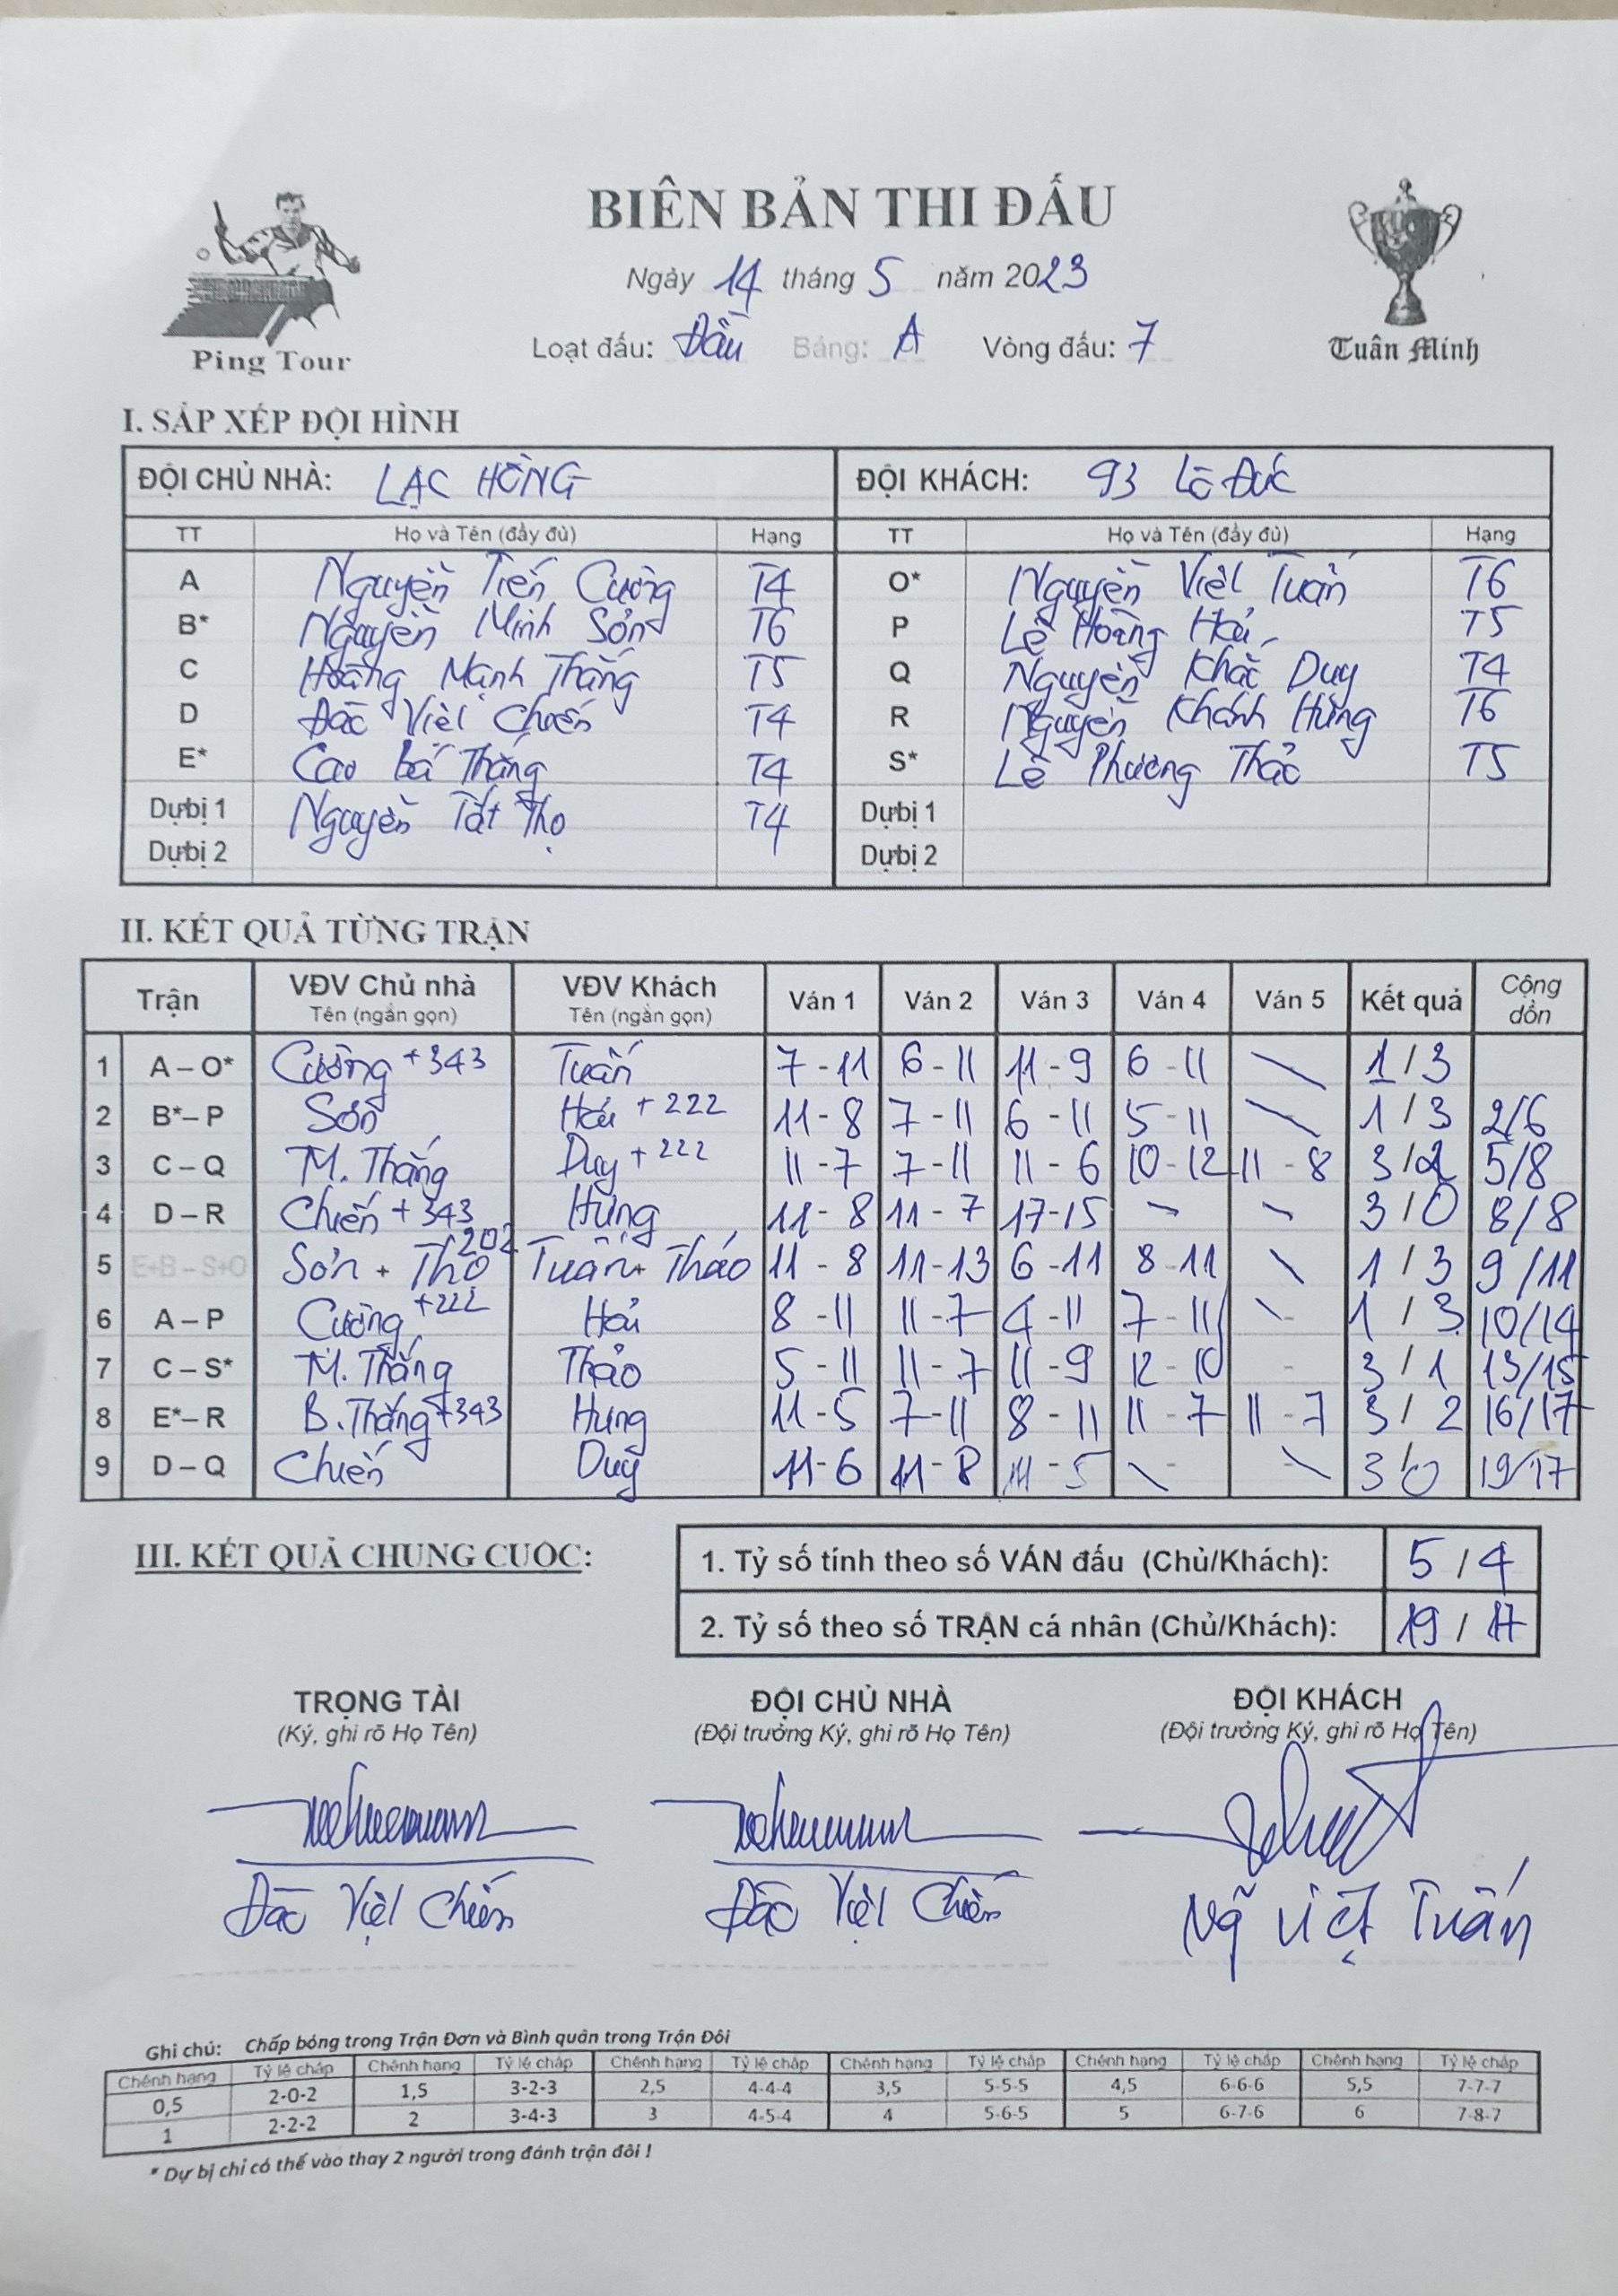 BIÊN BẢN THI ĐẤU
Ngày 14 tháng 5 năm 2023
Loạt đấu: Đầu Bảng: A Vòng đấu: 7
Ping Tour
Tuân Minh
I. SẮP XẾP ĐỘI HÌNH
ĐỘI CHỦ NHÀ: LẠC HỒNG ĐỘI KHÁCH: 93 Lò Đúc
TT Họ và Tên (đầy đủ) Hạng TT Họ và Tên (đầy đủ) Hạng
A Nguyễn Tiến Cường T4 O* Nguyễn Việt Tuấn T6
B* Nguyễn Minh Sơn T6 P Lê Hoàng Hải T5
C Hoàng Mạnh Thắng T5 Q Nguyễn Khắc Duy T4
D Đào Việt Chiến T4 R Nguyễn Khánh Hưng T6
E* Cao Bá Thắng T4 S* Lê Phương Thảo T5
Dự bị 1 Nguyễn Tất Thọ T4 Dự bị 1
Dự bị 2 Dự bị 2
II. KẾT QUẢ TỪNG TRẬN
Trận VĐV Chủ nhà Tên (ngắn gọn) VĐV Khách Tên (ngắn gọn) Ván 1 Ván 2 Ván 3 Ván 4 Ván 5 Kết quả Cộng dồn
1 A – O* Cường +343 Tuấn 7 - 11 6 - 11 11 - 9 6 - 11 \ 1 / 3
2 B* – P Sơn Hải + 222 11 - 8 7 - 11 6 - 11 5 - 11 \ 1 / 3 2/6
3 C – Q M. Thắng Duy + 222 11 - 7 7 - 11 11 - 6 10 - 12 11 - 8 3 / 2 5/8
4 D – R Chiến + 343 Hưng 11 - 8 11 - 7 17 - 15 \ \ 3 / 0 8/8
5 E+B – S+O Sơn + Thọ 202 Tuấn + Thảo 11 - 8 11 - 13 6 - 11 8 - 11 \ 1 / 3 9/11
6 A – P Cường +222 Hải 8 - 11 11 - 7 4 - 11 7 - 11 \ 1 / 3 10/14
7 C – S* M. Thắng Thảo 5 - 11 11 - 7 11 - 9 12 - 10 - 3 / 1 13/15
8 E* – R B. Thắng +343 Hưng 11 - 5 7 - 11 8 - 11 11 - 7 11 - 7 3 / 2 16/17
9 D – Q Chiến Duy 11 - 6 11 - 8 11 - 5 \ \ 3 / 0 19/17
III. KẾT QUẢ CHUNG CUỘC:
1. Tỷ số tính theo số VÁN đấu (Chủ/Khách): 5 / 4
2. Tỷ số theo số TRẬN cá nhân (Chủ/Khách): 19 / 17
TRỌNG TÀI ĐỘI CHỦ NHÀ ĐỘI KHÁCH
(Ký, ghi rõ Họ Tên) (Đội trưởng Ký, ghi rõ Họ Tên) (Đội trưởng Ký, ghi rõ Họ Tên)
Đào Việt Chiến Đào Việt Chiến Ng Việt Tuấn
Ghi chú: Chấp bóng trong Trận Đơn và Bình quân trong Trận Đôi
Chênh hạng Tỷ lệ chấp Chênh hạng Tỷ lệ chấp Chênh hạng Tỷ lệ chấp Chênh hạng Tỷ lệ chấp Chênh hạng Tỷ lệ chấp Chênh hạng Tỷ lệ chấp
0,5 2-0-2 1,5 3-2-3 2,5 4-4-4 3,5 5-5-5 4,5 6-6-6 5,5 7-7-7
1 2-2-2 2 3-4-3 3 4-5-4 4 5-6-5 5 6-7-6 6 7-8-7
* Dự bị chỉ có thể vào thay 2 người trong đánh trận đôi !